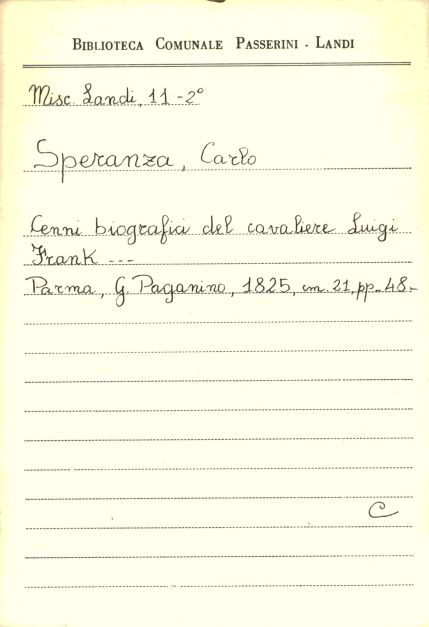 BIBLIOTECA COMUNALE PASSERINI - LANDI
Misc. Landi, 11-2°
Speranza, Carlo
Cenni biografici del cavaliere Luigi
Frank ---
Parma, G. Paganino, 1825, cm. 21, pp. 48.-
C